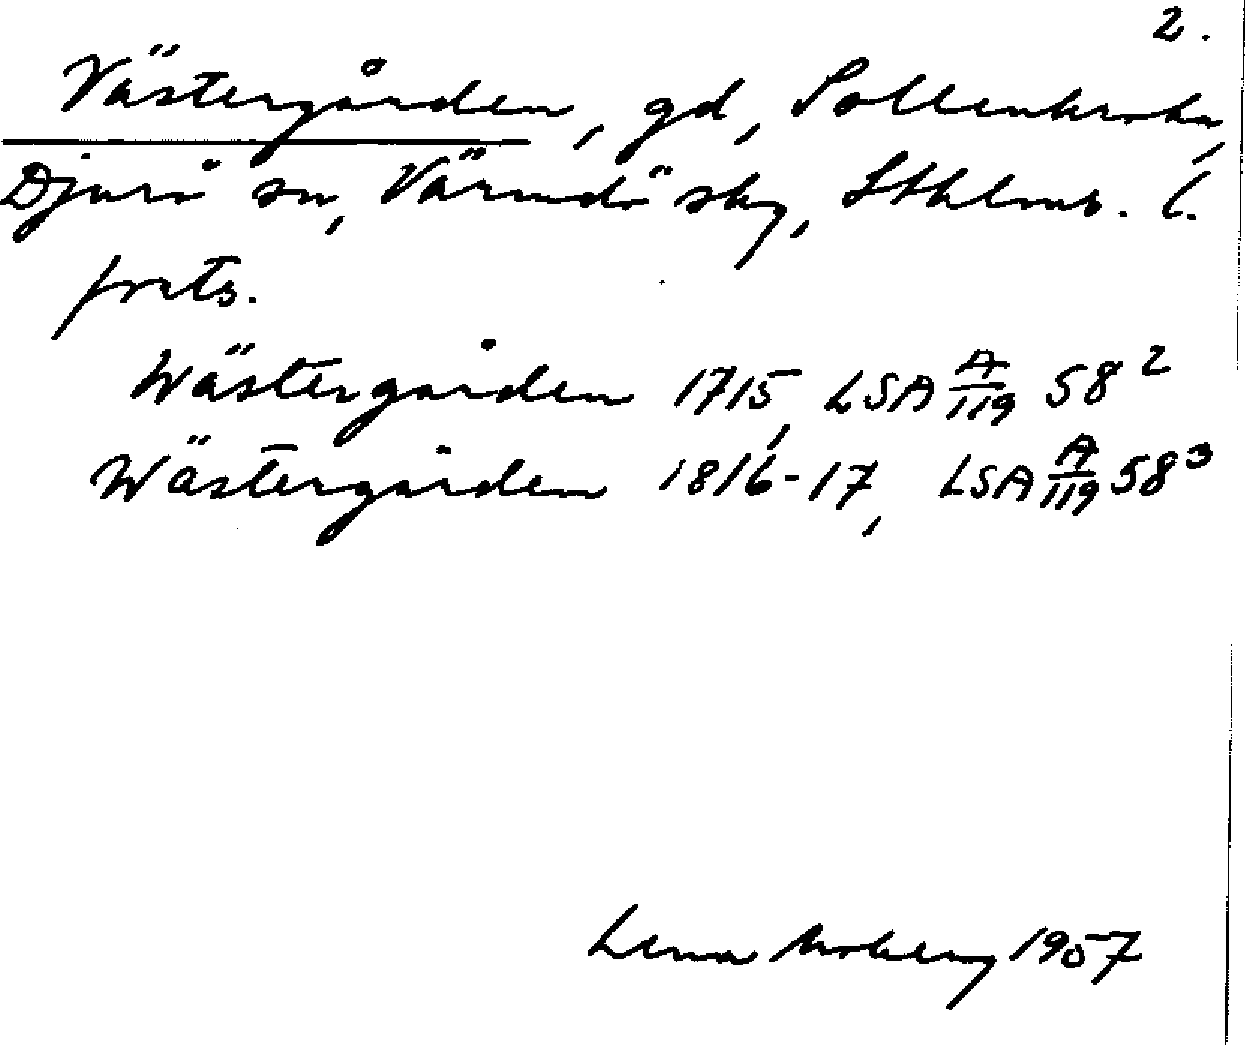 2.
Västergården, gd, Sollenkroka,
Djurö sn, Värmdö skg, Sthlms. l.
forts.
Wästergården 1715, LSA A/119 58²
Wästergården 1816-17, LSA A/119 58³
Lena Moberg 1957